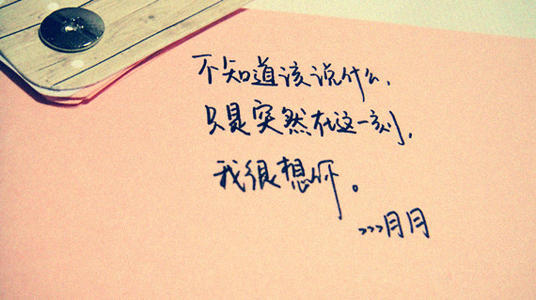 不知道该说什么,
只是突然在这一刻,
我很想你。
>>>月月